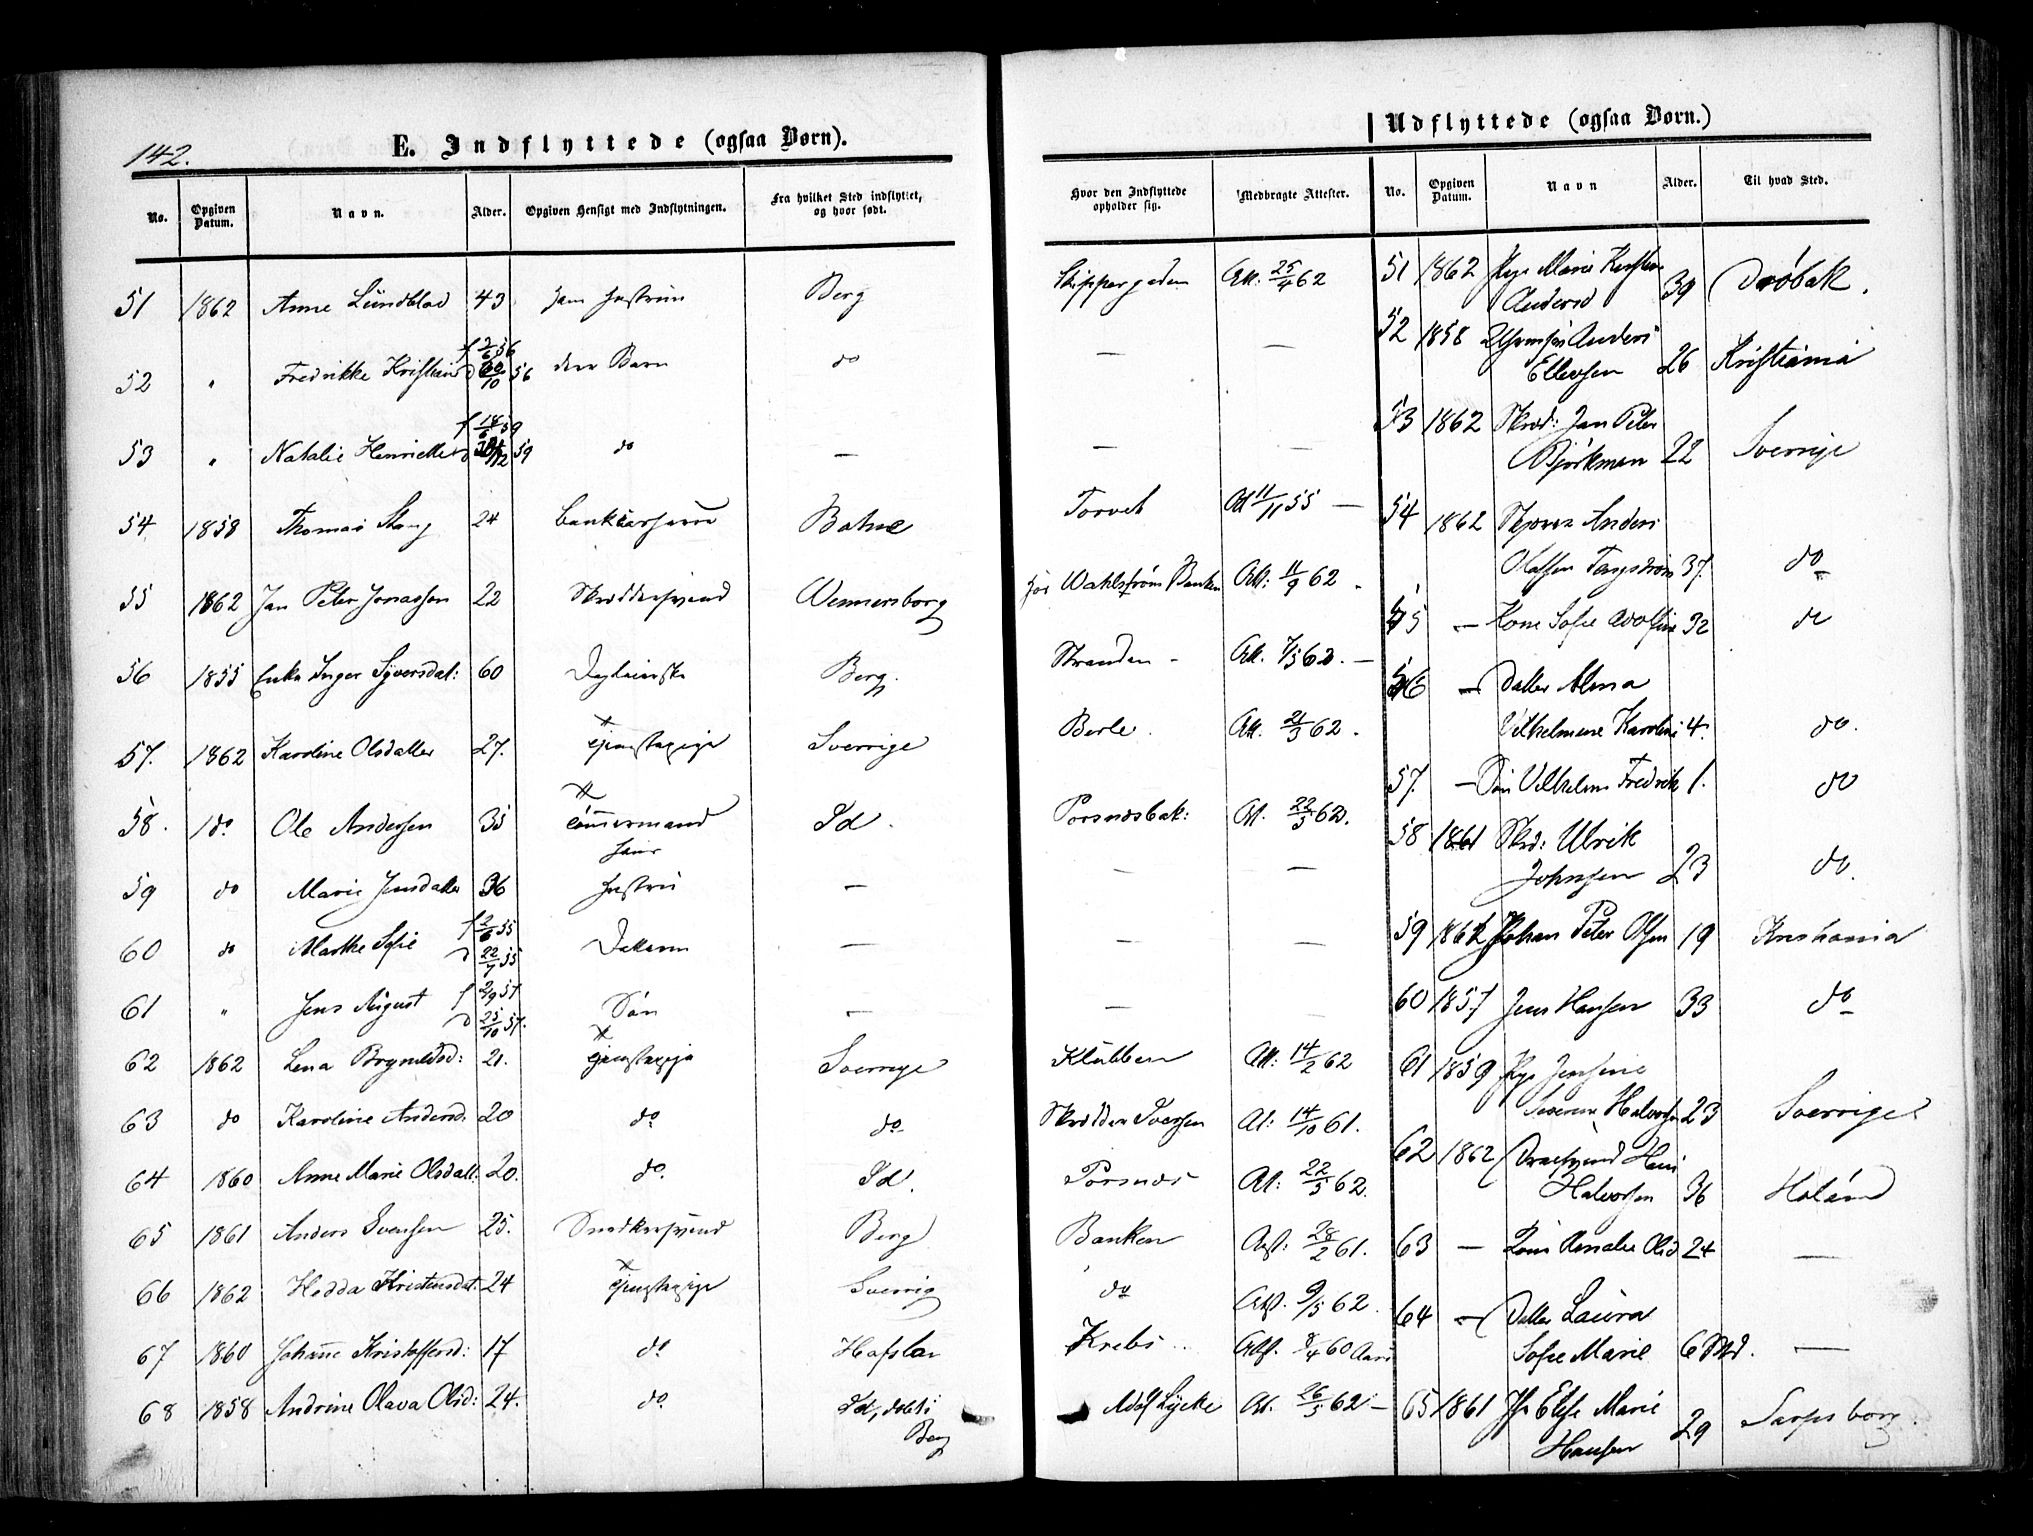 142.
E. Indflyttede (ogsaa Børn).
No. Opgiven Datum. Navn. Alder. Opgiven Hensigt med Indflytningen. Fra hvilket Sted indflyttet, og hvor født. Hvor den Indflyttede opholder sig. Medbragte Attester.
51 1862 Anne Lundblad 43 Berg Skippergaden Att: 25/4 62
52 " Fredrikke f 2/6 56 d 56 Barn do — —
53 " Natalie f 18/6 59 59 do — — —
54 1858 Thomas Stang 24 Torvet 11/11 55 —
55 1862 Jan Peter Jonassen 22 Skreddersvend Wennersborg Wahlstrøm Banken Att: 11/9 62
56 1855 Enke Inger Syversdat: 60 Berg. Stranden Att. 62. —
57. 1862 Karoline Olsdatter 27. Sverrige Att. 62.
58. do. Ole Andersen 35 Id. At. 22/5 62.
59 do Marie Jensdatter 36 — — —
60 do Sofie f 2/6 55 d 22/7 55 — — —
61 " Jens August f 2/9 57 d 25/10 57. Søn — — —
62 1862 Lena 21. Sverrige Klubben Att: 14/2 62
63 do Karoline Andersd. 20 do do Skredder Svensen At: 14/10 61.
64 1860 Anne Marie Olsdatt: 20. do. Id. Porsnes At: 22/5 62.
65 1861 Anders Svensen 25. Snedkersvend Berg Banken Att: 28/2 61.
66 1862 Hedda Kristensdat: 24 Sverrig do Att. 9/5 62.
67 1860 Johanne Kristoffersd: 17 do Hafslo Krebs Att. 8/4 60
68 1858 Andrine Olava Olsd: 24. do. Id, Berg Adolf Lycke At. 26/5 62 —
Udflyttede (ogsaa Børn.)
No. Opgiven Datum. Navn Alder. Til hvad Sted.
51 1862 Pige Marie
Andersd 39 Drøbak.
52 1858 Anders
Ellevsen 26 Kristiania
53 1862 Skræd: Jan Peter
Björkman 22 Sverrige
54 1862 Anders
Olassen 37. do
55 — Kone Sofie Adolfine 32 do
56 — Datter Alma
Vilhelmine Karoline 4. do.
57. — Søn Vilhelm Fredrik 1. do
58 1861 Skrd: Ulrik
Johnsen 23 do.
59 1862 Johan Peter Olsen 19 Kristiania
60 1857 Jens Hansen 33 do
61 1859 Pige Jensine
Severine Halvorsen 23 Sverrige
62 1862 Hans
Halvorsen 36 Høland
63 — Kone Amalie Olsd 24 —
64 — Datter Laura
Sofie Marie 6 Md. —
65 1861 Elise Marie
Hansen 29 Sarpsborg.